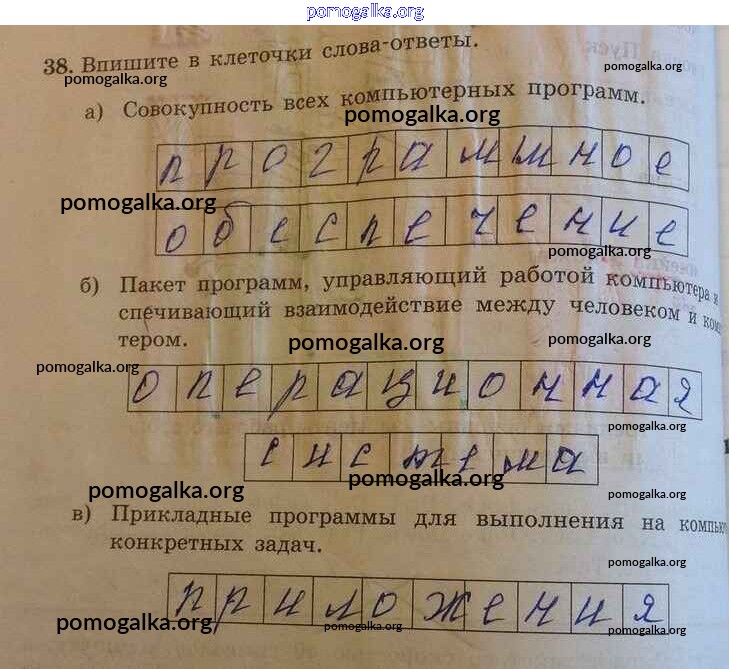 pomogalka.org
38. Впишите в клеточки слова-ответы.
pomogalka.org pomogalka.org
а) Совокупность всех компьютерных программ.
pomogalka.org
программное
pomogalka.org
обеспечение
pomogalka.org
б) Пакет программ, управляющий работой компьютера и
спечивающий взаимодействие между человеком и ком
тером.
pomogalka.org pomogalka.org
pomogalka.org
операционная
pomogalka.org
система
pomogalka.org pomogalka.org pomogalka.org
в) Прикладные программы для выполнения на компью
конкретных задач.
pomogalka.org
приложения
pomogalka.org pomogalka.org pomogalka.org